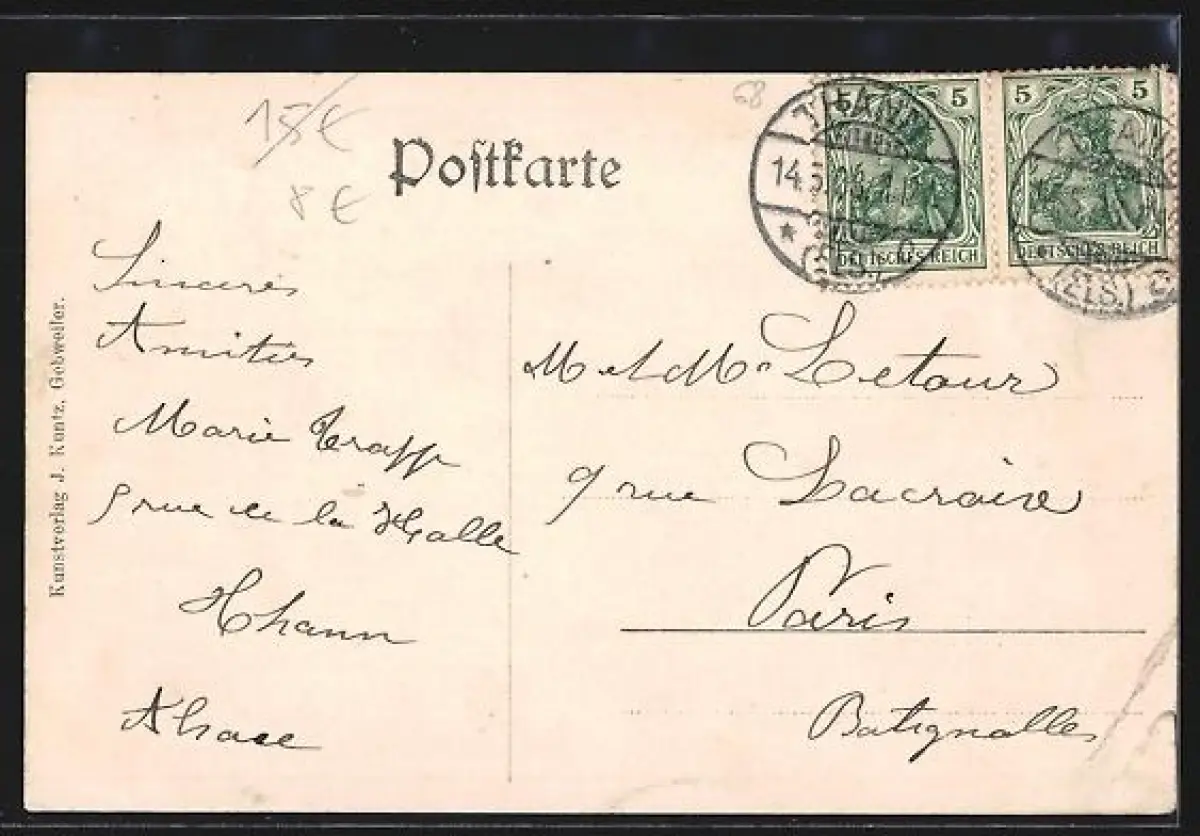 15€
8€
68
Postkarte
5 5 5
DEUTSCHES REICH
DEUTSCHES REICH
THANN
14.5.
(ELS.)
Sincères
Amitiés
Marie Trapp
rue de la Halle
Thann
Alsace
M et Mme Letour
9 rue Lacroix
Paris
Batignolles
Kunstverlag J. Kuntz, Gebweiler.